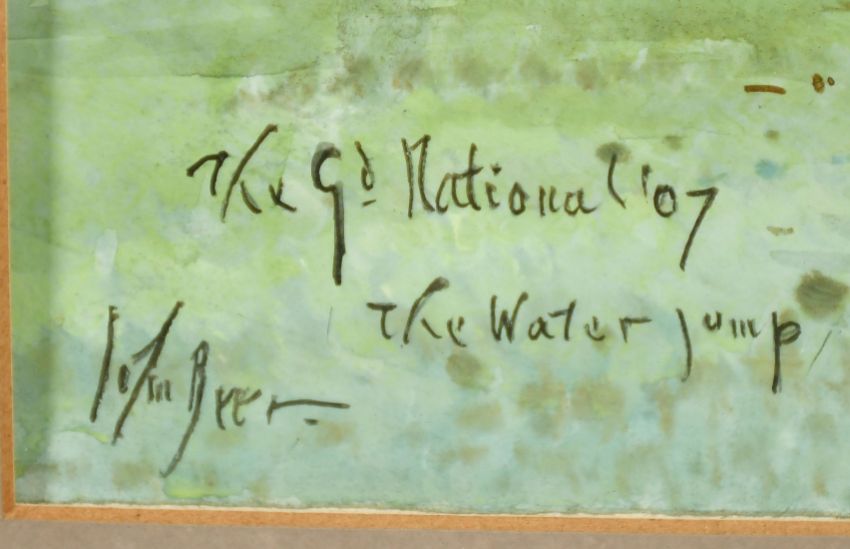 The Gd National '07
The Water Jump
John Beer